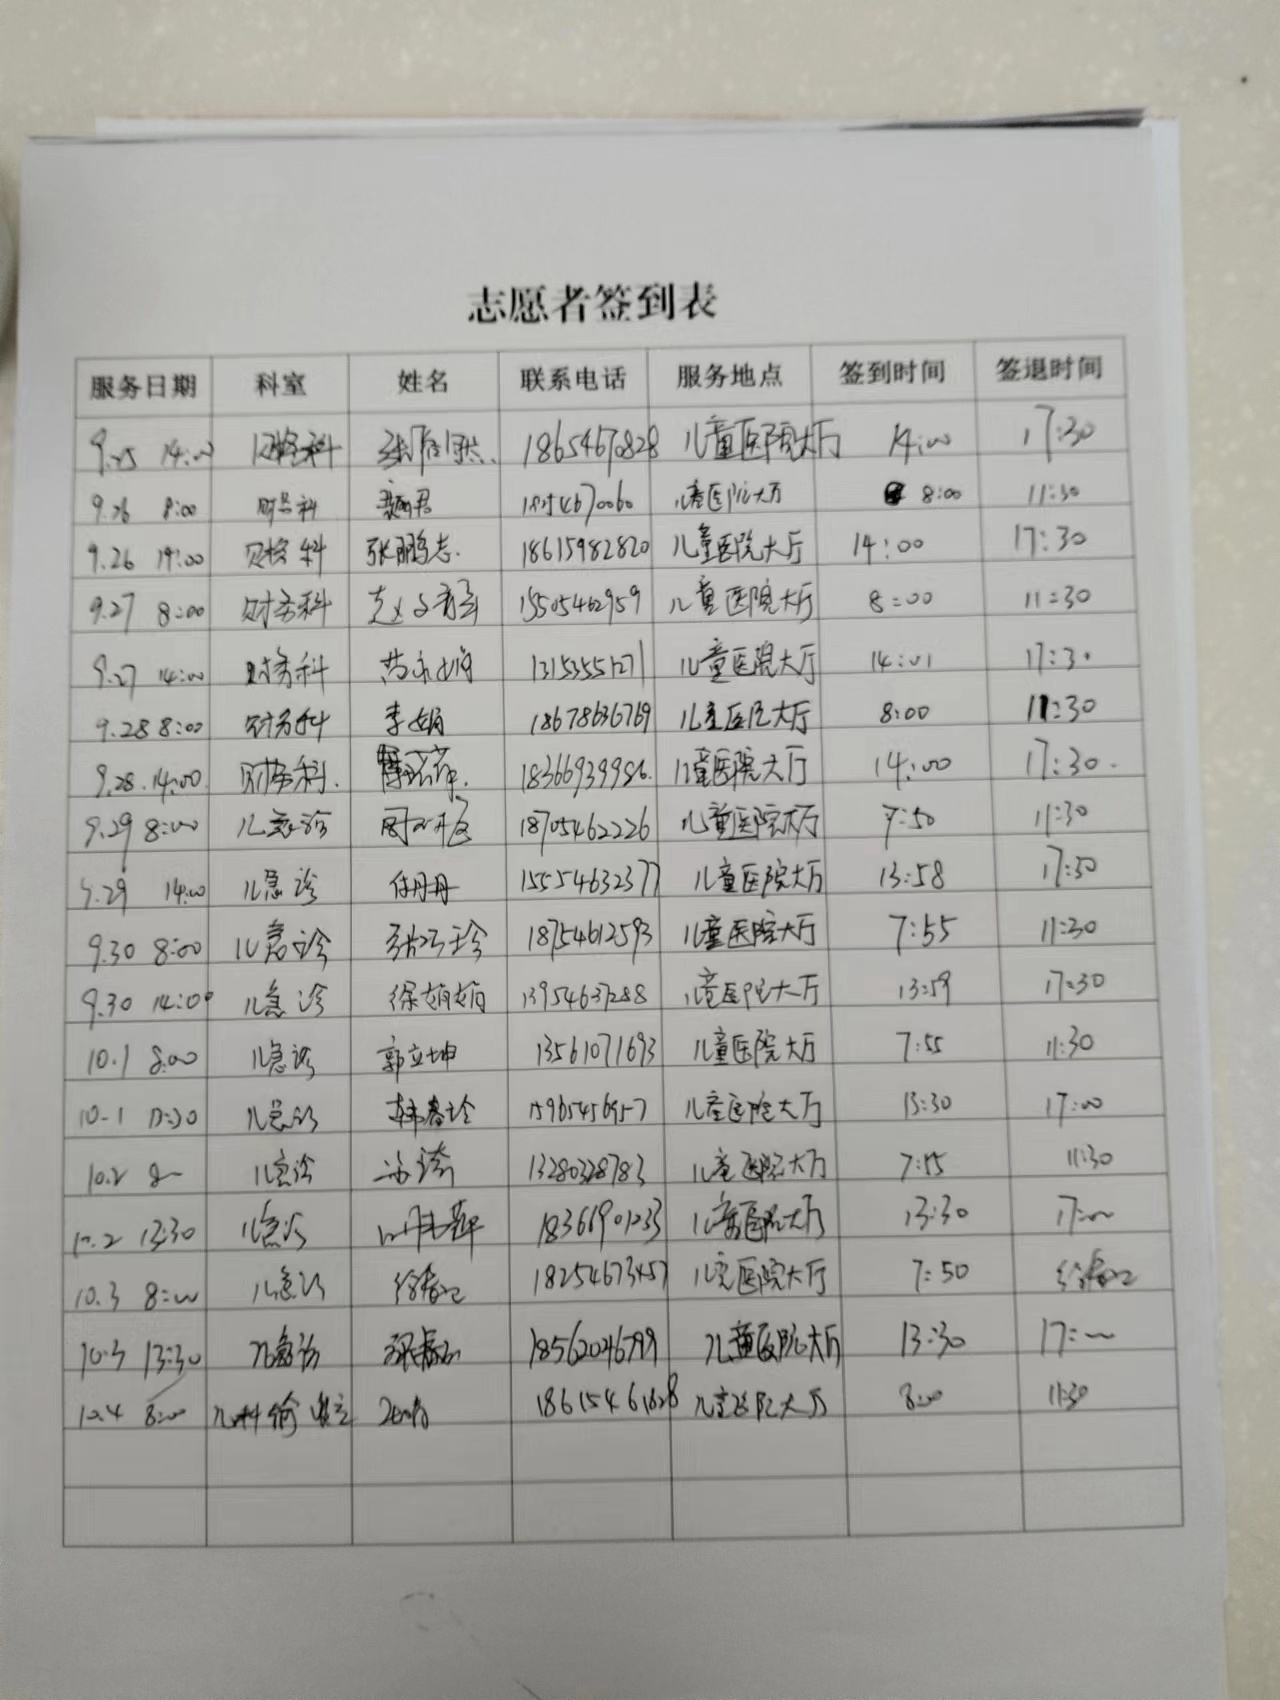 志愿者签到表
服务日期 科室 姓名 联系电话 服务地点 签到时间 签退时间
9.25 14:00 财务科 18654670828 儿童医院大厅 14:00 17:30
9.26 8:00 财务科 18254670060 儿童医院大厅 8:00 11:30
9.26 14:00 财务科 张鹏志 18615982820 儿童医院大厅 14:00 17:30
9.27 8:00 财务科 15505462959 儿童医院大厅 8:00 11:30
9.27 14:00 财务科 13153551271 儿童医院大厅 14:01 17:30
9.28 8:00 财务科 李娟 18678636769 儿童医院大厅 8:00 11:30
9.28 14:00 财务科 18366939986 儿童医院大厅 14:00 17:30
9.29 8:00 儿急诊 18705462226 儿童医院大厅 7:50 11:30
9.29 14:00 儿急诊 任丹丹 15554632377 儿童医院大厅 13:58 17:30
9.30 8:00 儿急诊 张巧珍 18754612593 儿童医院大厅 7:55 11:30
9.30 14:00 儿急诊 徐娟娟 13954637288 儿童医院大厅 13:59 17:30
10.1 8:00 儿急诊 郭立坤 13561071693 儿童医院大厅 7:55 11:30
10.1 13:30 儿急诊 韩春玲 15965456957 儿童医院大厅 13:30 17:00
10.2 8 儿急诊 13280328783 儿童医院大厅 7:55 11:30
10.2 13:30 儿急诊 18366901233 儿童医院大厅 13:30 17:00
10.3 8:00 儿急诊 18254673457 儿童医院大厅 7:50
10.3 13:30 儿急诊 18562046799 儿童医院大厅 13:30 17:00
10.4 8:00 18615461828 儿童医院大厅 8:00 11:30